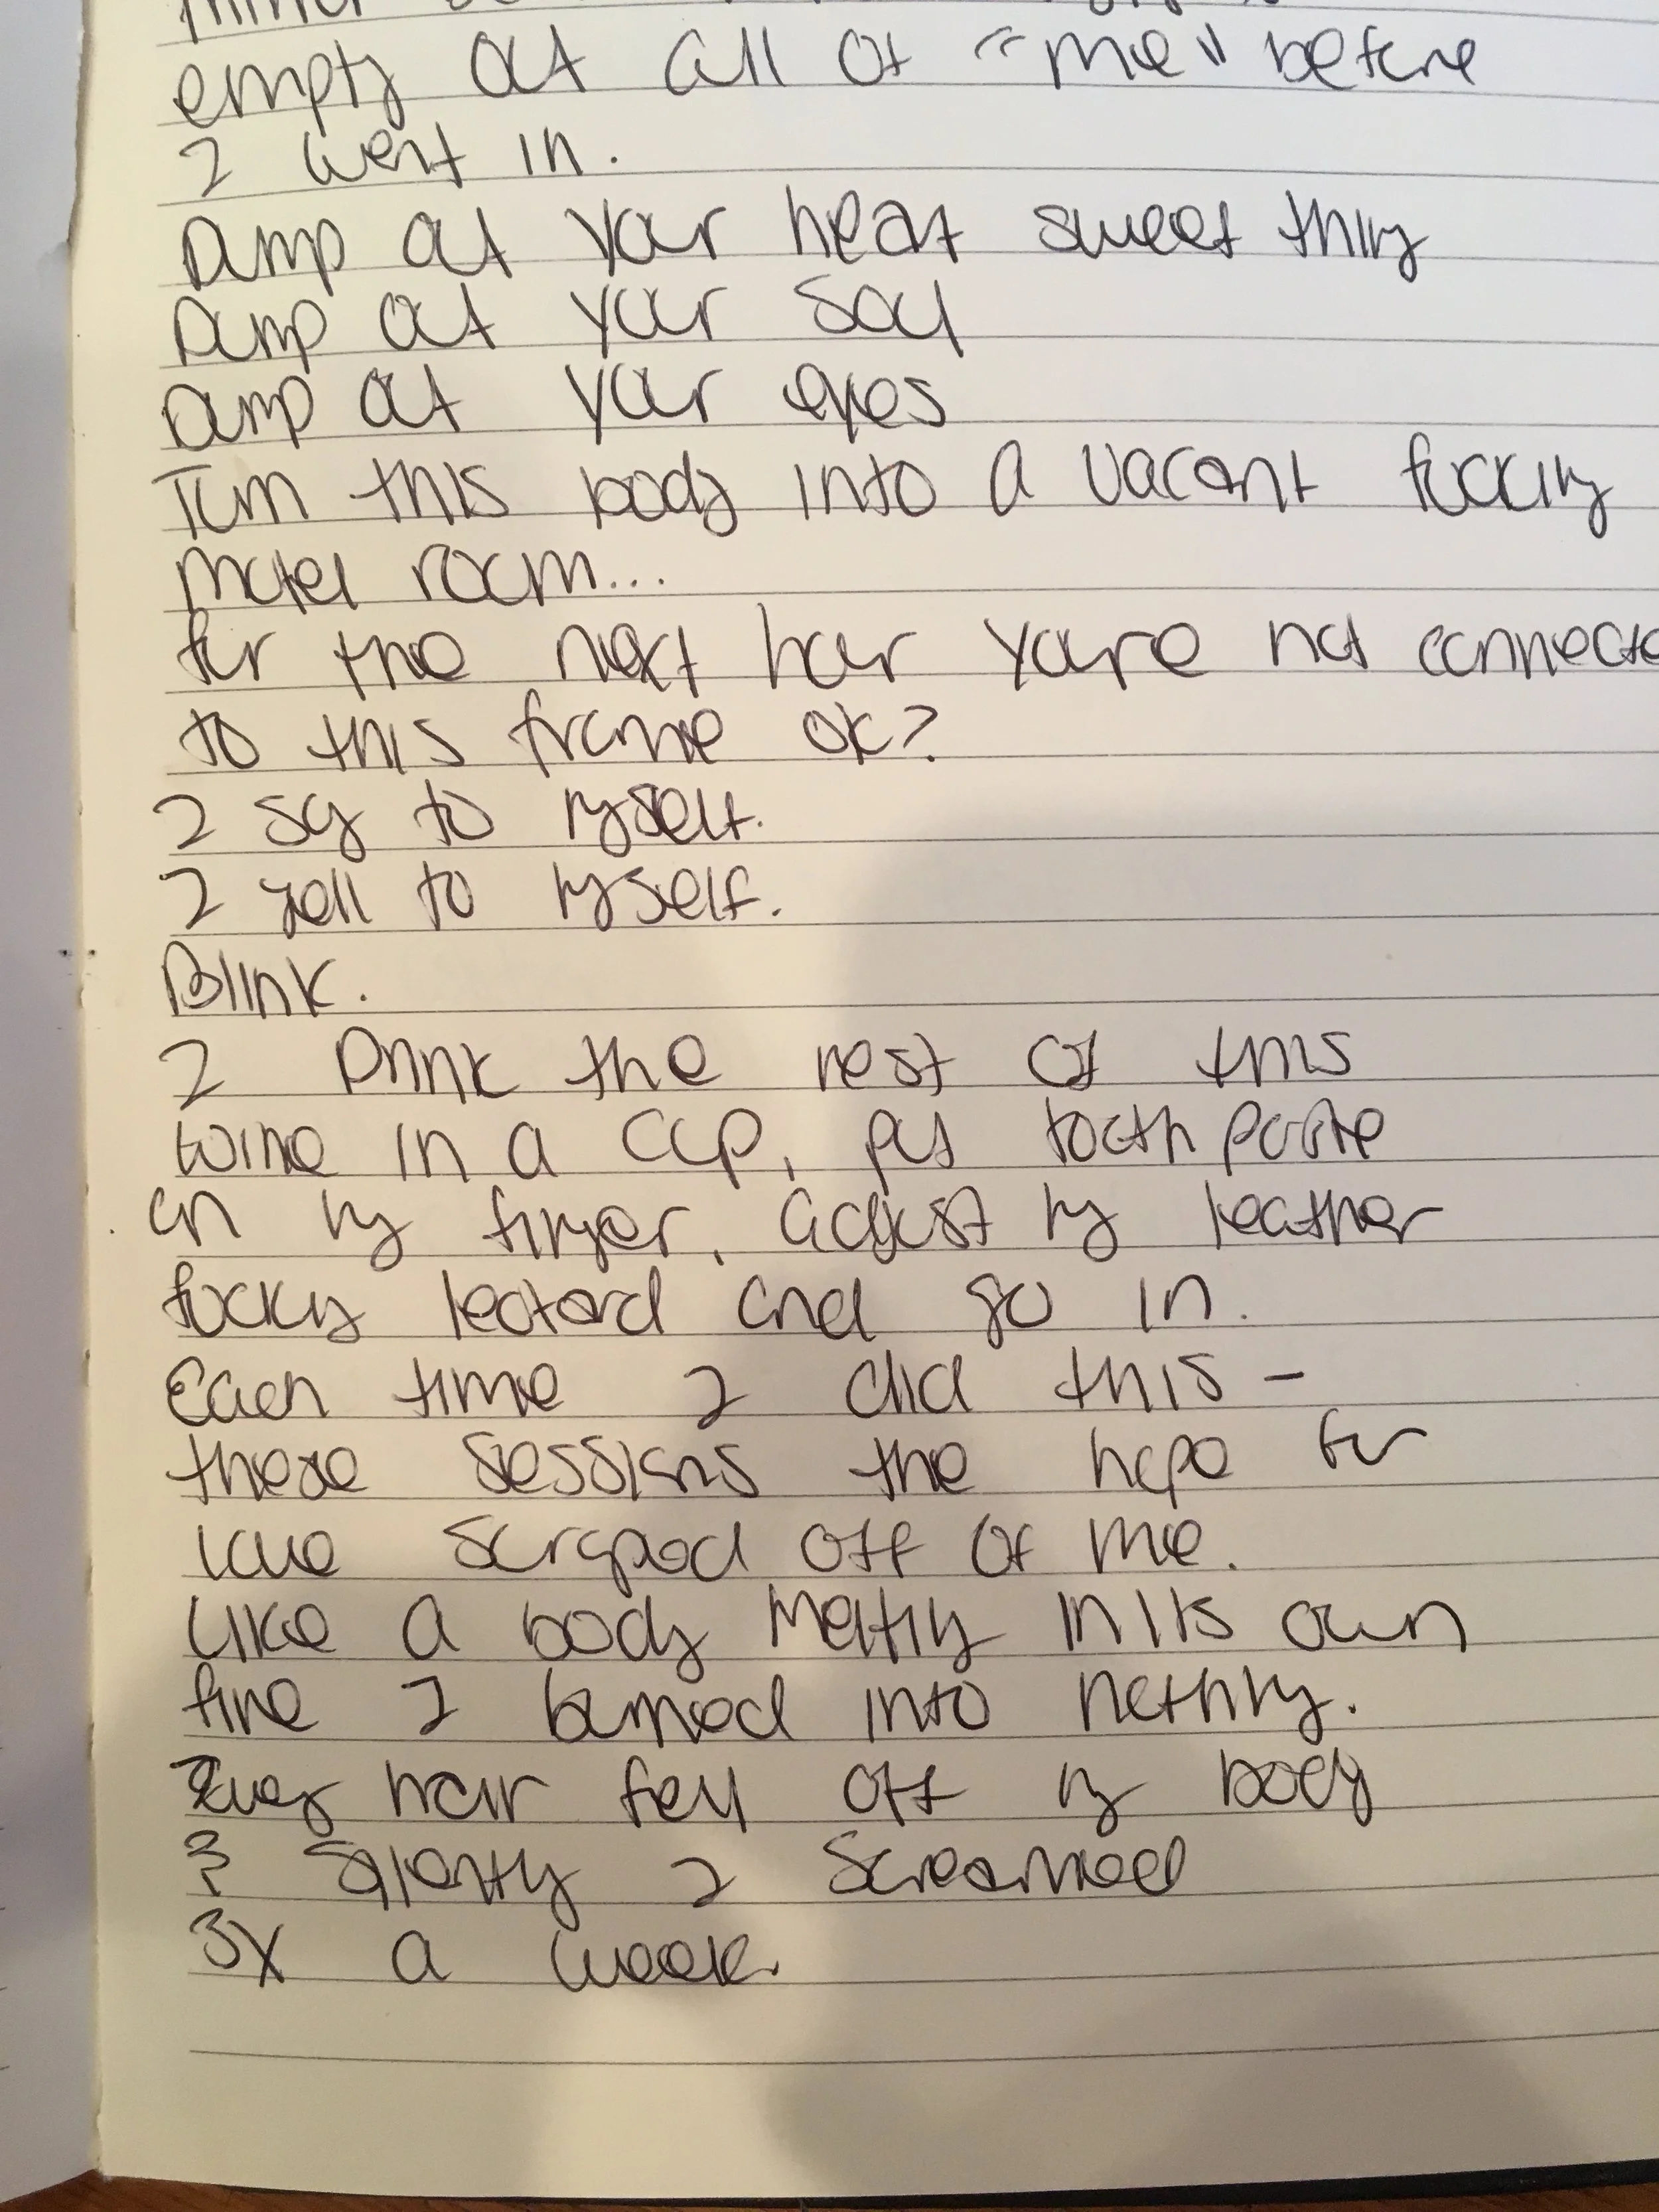 empty out all of "me" before
I went in.
Dump out your heart sweet thing
Dump out your soul
Dump out your eyes
Turn this body into a vacant fucking
motel room...
for the next hour you're not connecte
to this frame ok?
I say to myself.
I yell to myself.
Blink.
I Drink the rest of this
wine in a cup, put toothpaste
on my finger, adjust my leather
fucking leotard and go in.
Each time I did this -
these sessions the hope for
love scraped off of me.
Like a body melting in its own
fire I burned into nothing.
Every hair fell off my body
& silently I screamed
3x a week.